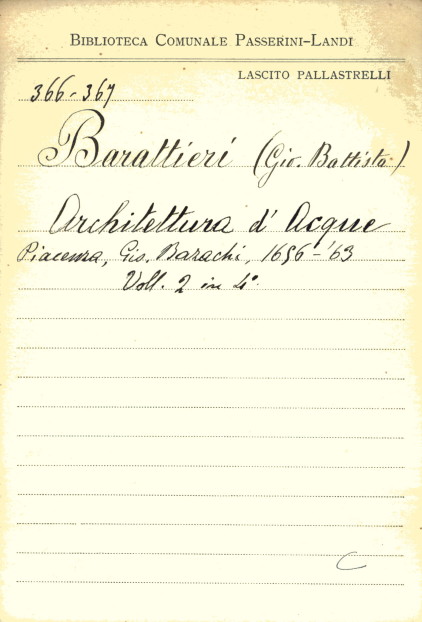 Biblioteca Comunale Passerini-Landi
LASCITO PALLASTRELLI
366-367
Barattieri (Gio. Battista)
Architettura d' Acque
Piacenza, Gio. Bazachi, 1656-'63
Voll. 2 in 4°
C